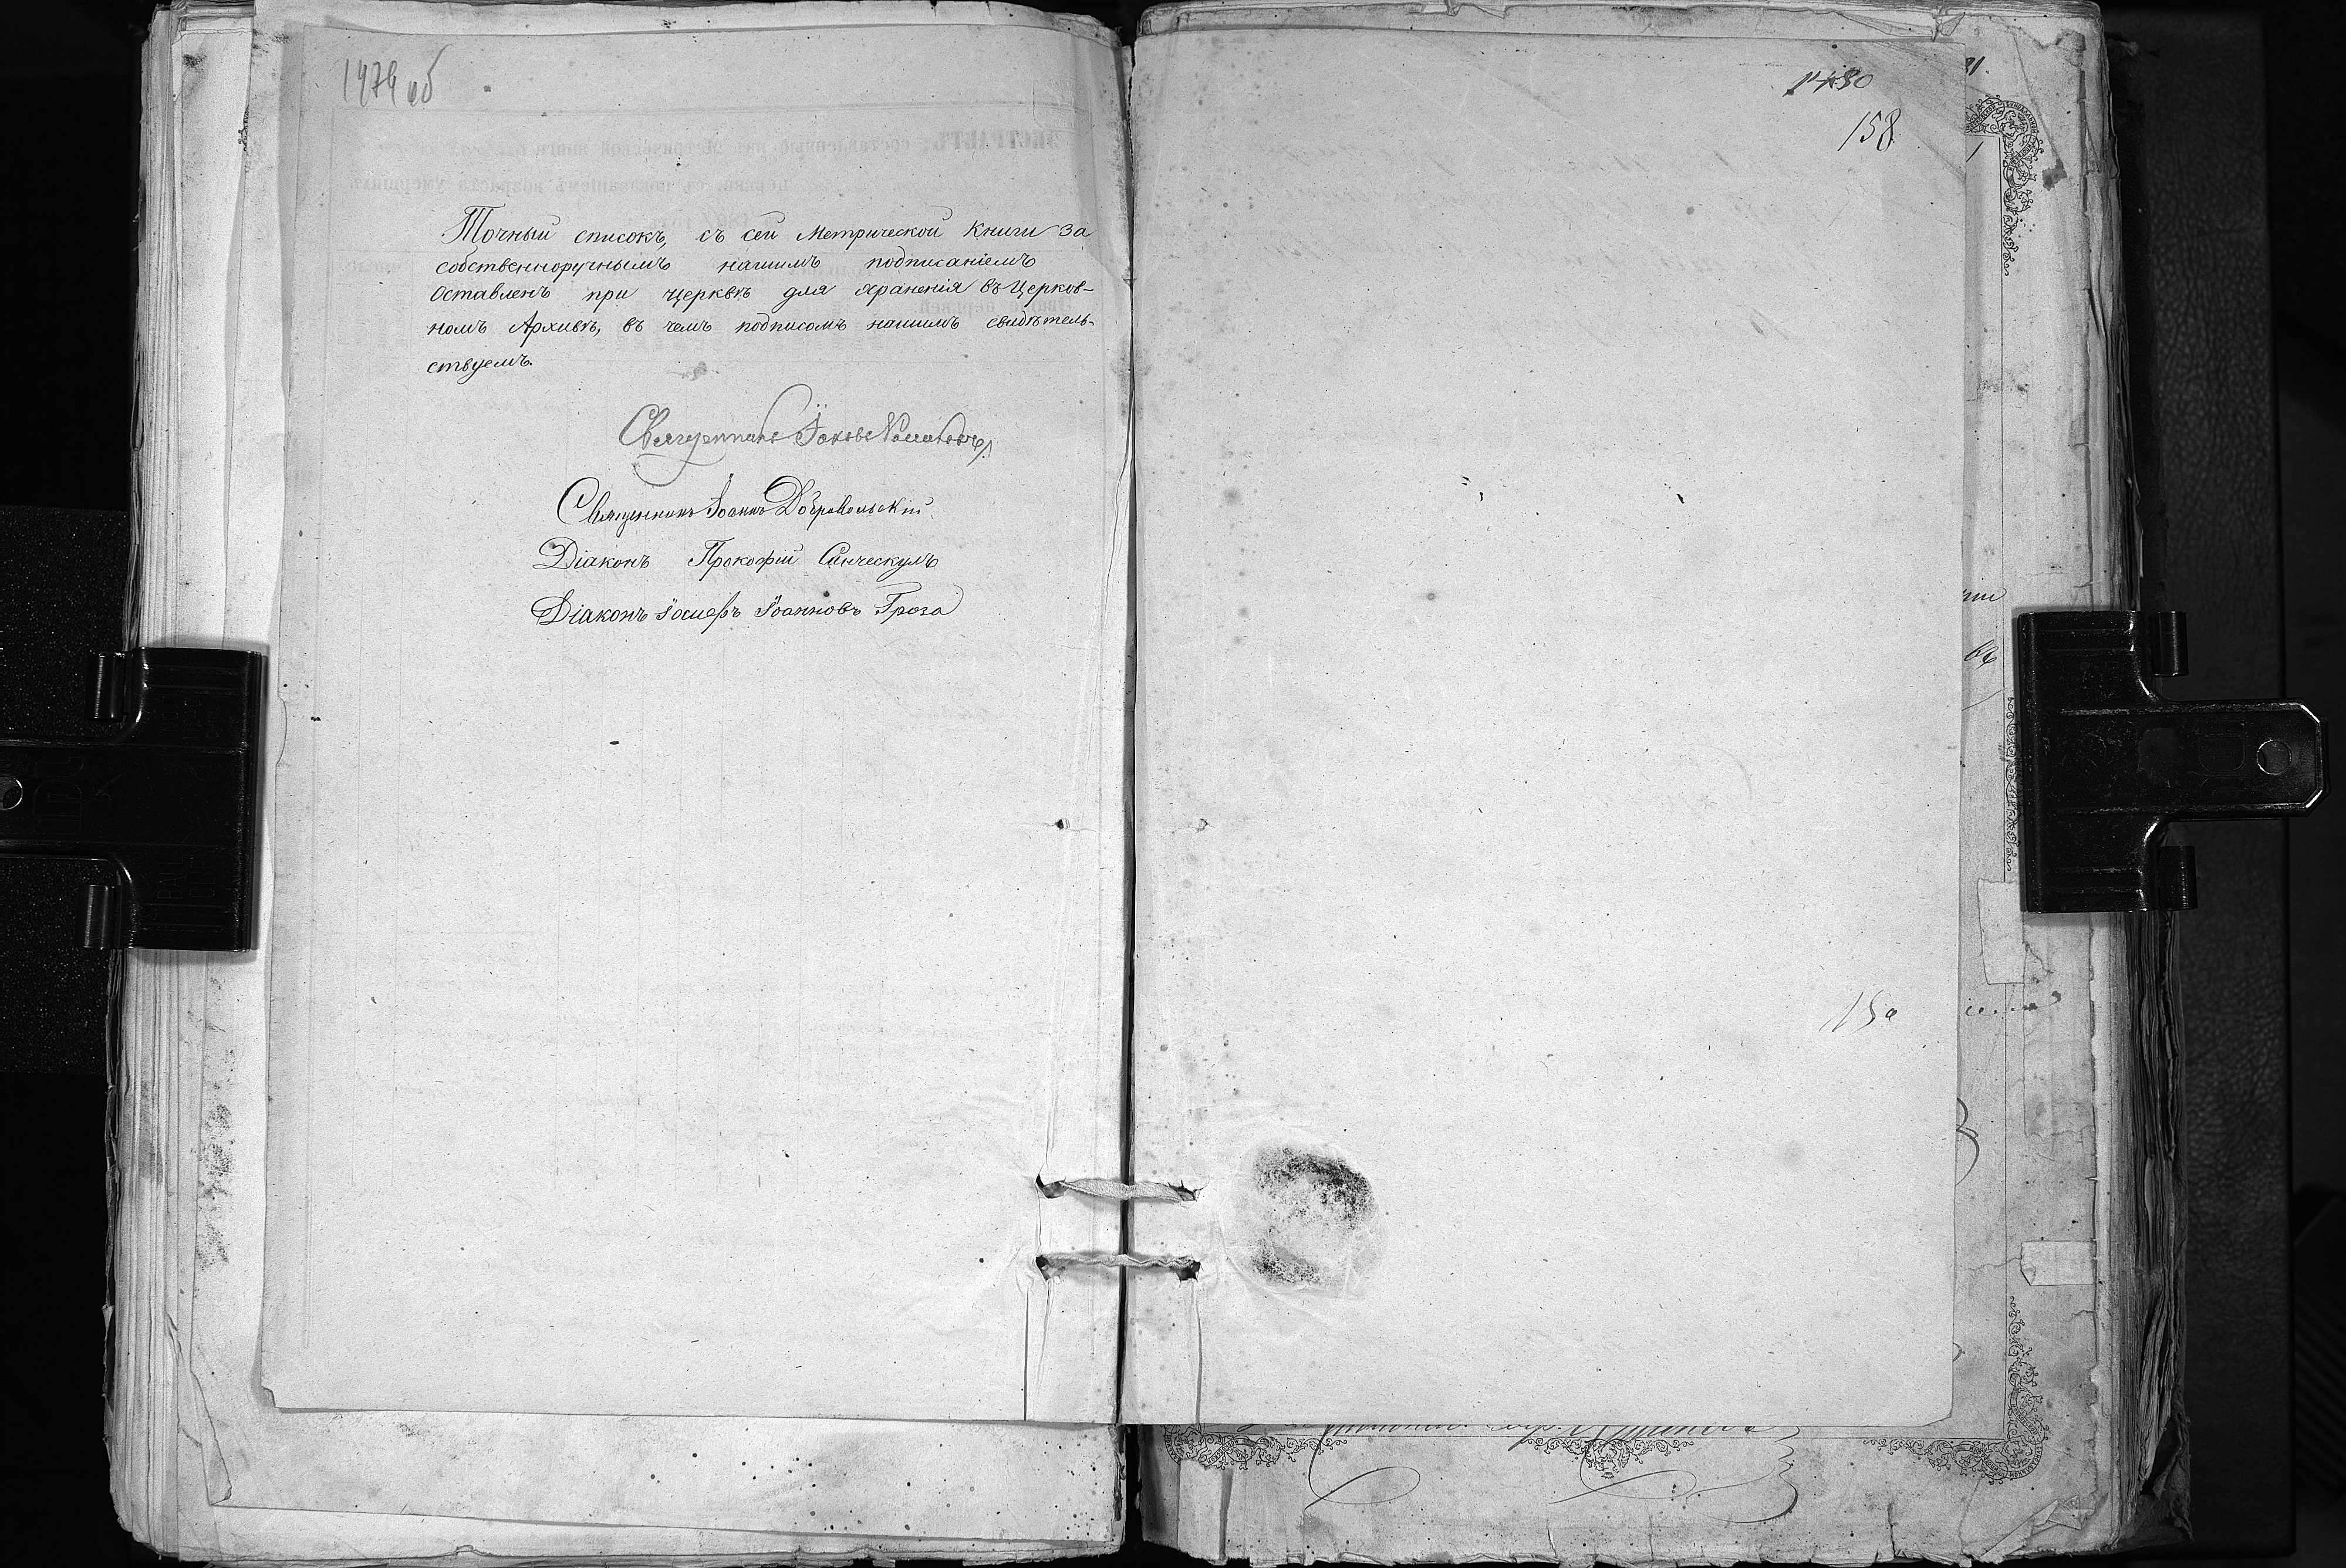 1479 об
Точный списокъ, съ сей Метрической Книги за
собственноручнымъ нашимъ подписаніемъ
Оставленъ при Церквѣ для храненія въ Церков-
номъ Архивѣ, въ чемъ подписомъ нашимъ свидѣтель-
ствуемъ.
Священникъ Іаковъ
Священникъ Іоаннъ Добровольскій
Діаконъ Прокофій
Діаконъ Іосифъ Іоанновъ Грога
1480
158